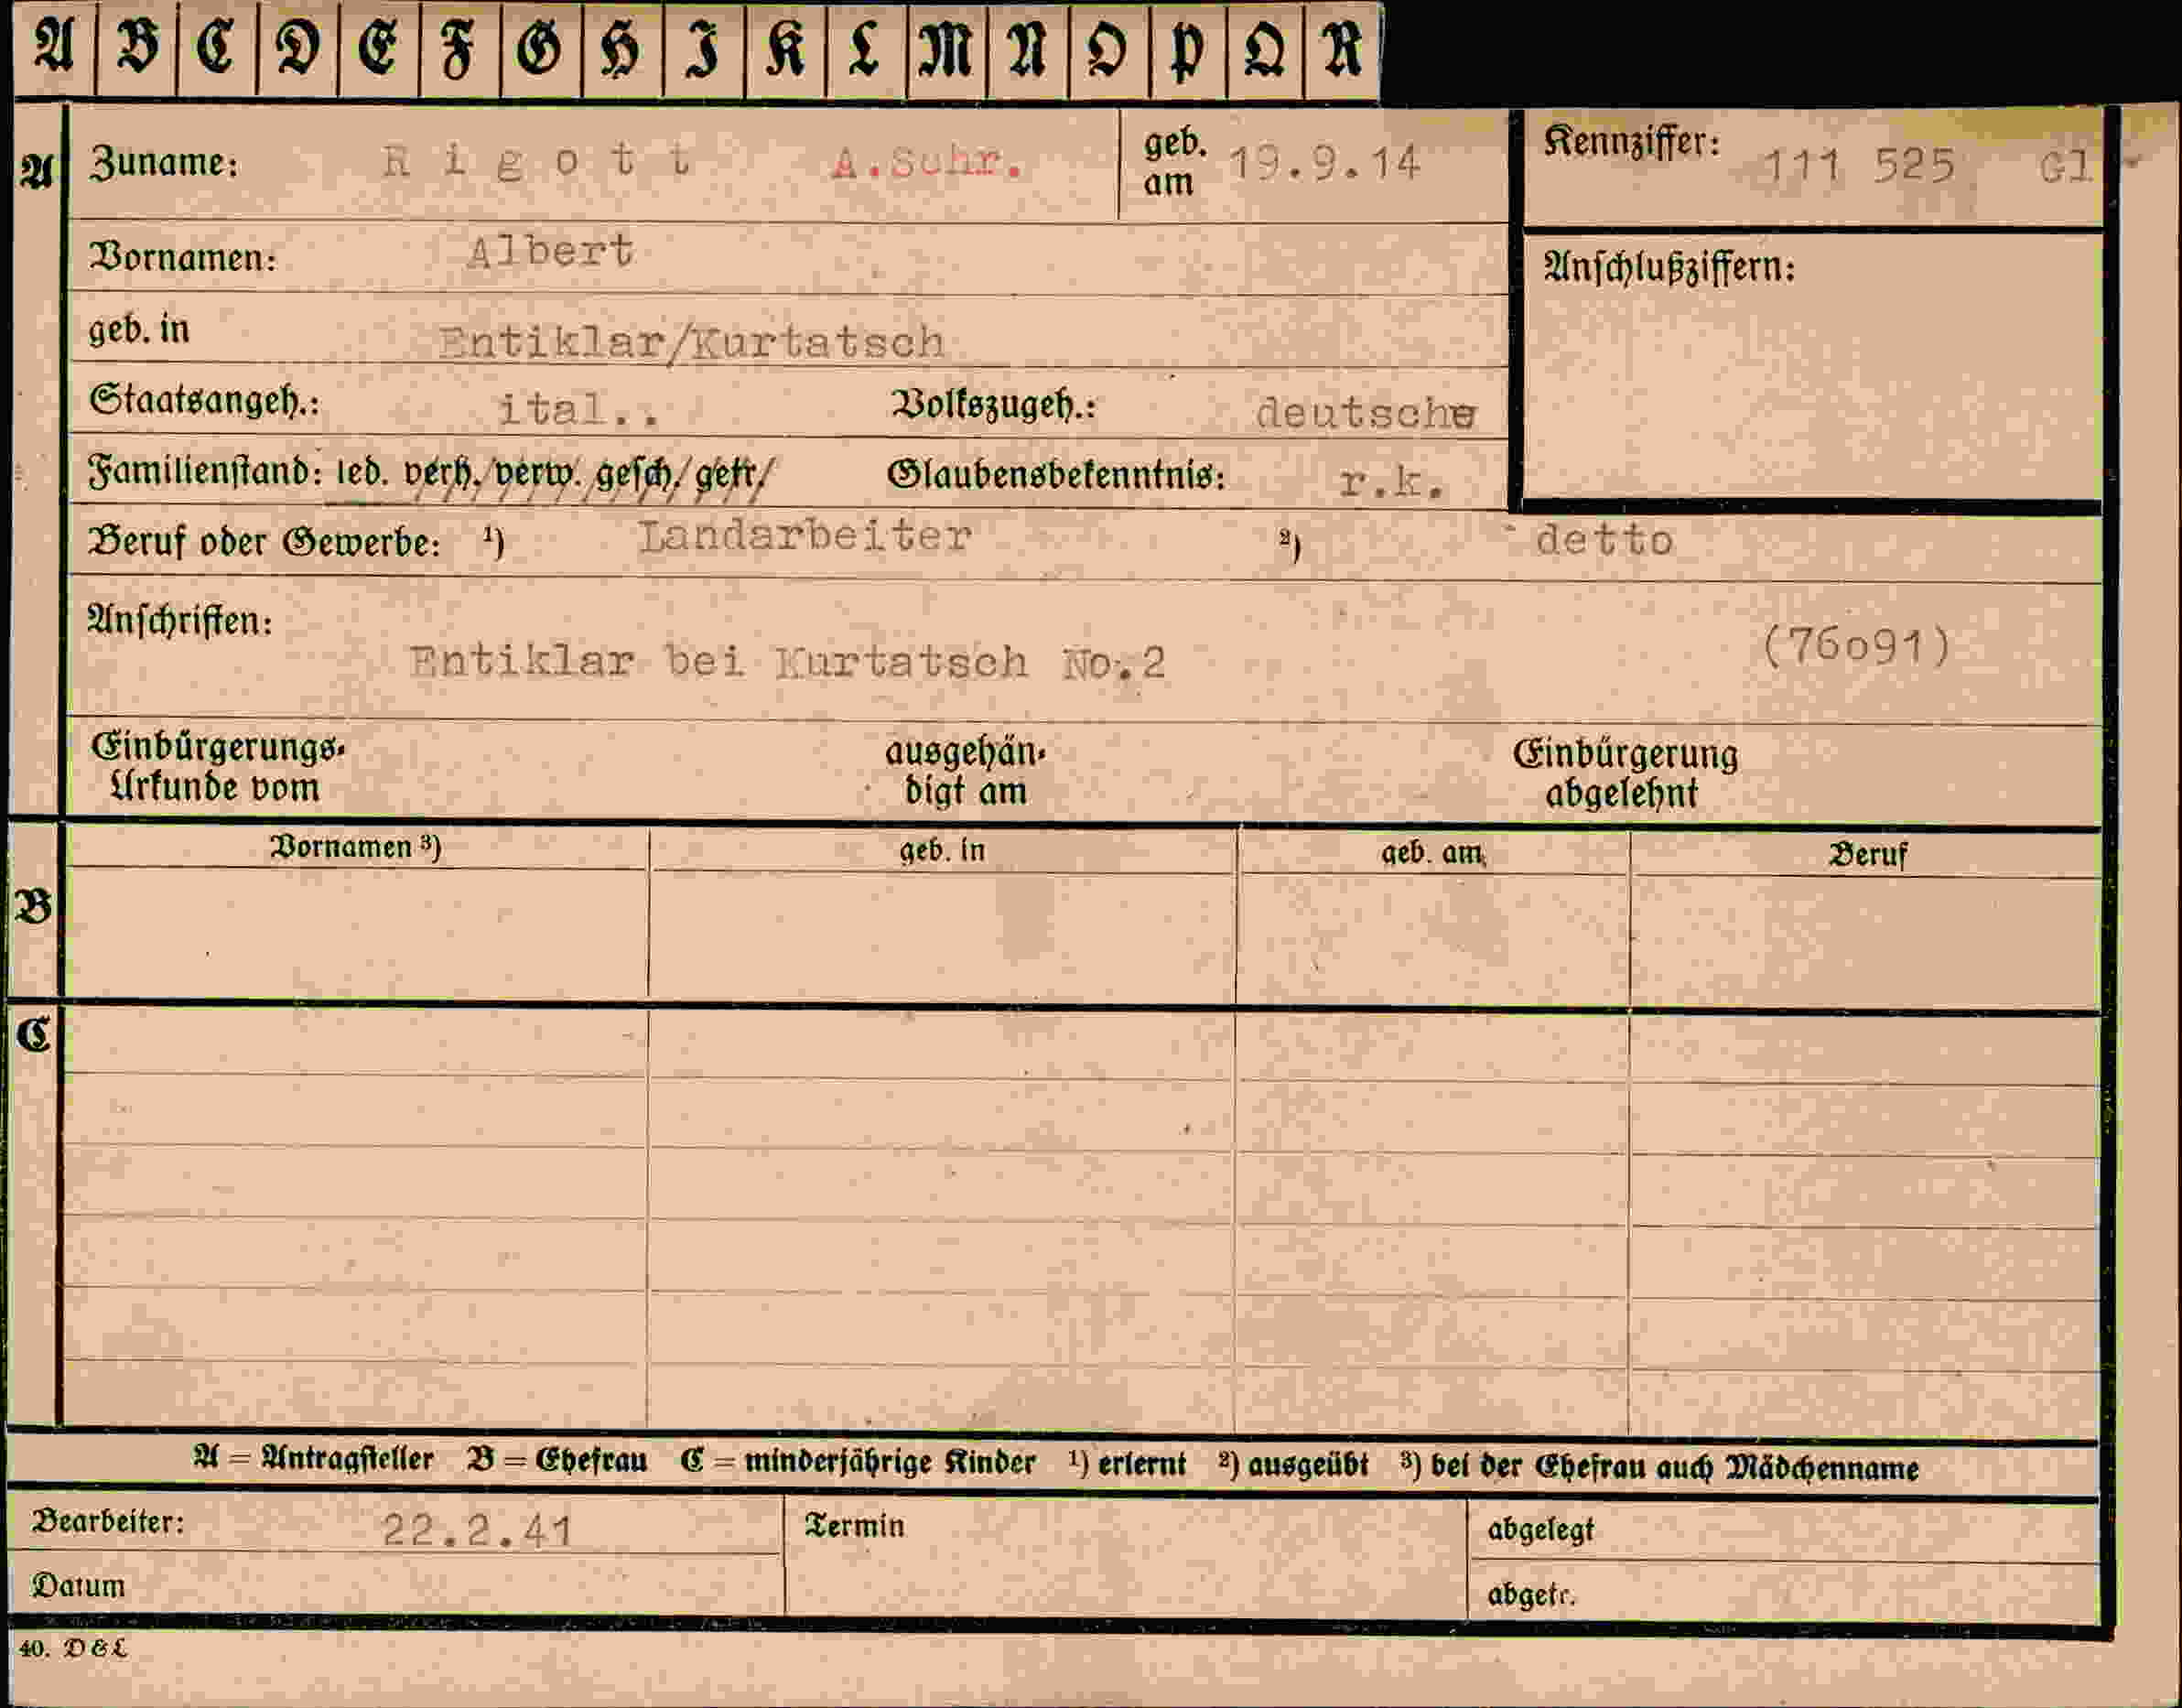 A B C D E F G H I K L M N O P Q R
A Zuname: Rigott A.Suhr. geb. am 19.9.14 Kennziffer: 111 525 Gl
Vornamen: Albert Anschlußziffern:
geb. in Entiklar/Kurtatsch
Staatsangeh.: ital.. Volkszugeh.: deutsche
Familienstand: led. verh./verw. gesch/getr/ Glaubensbekenntnis: r.k.
Beruf oder Gewerbe: ¹) Landarbeiter ²) detto
Anschriften:
Entiklar bei Kurtatsch No.2 (76o91)
Einbürgerungs- ausgehän- Einbürgerung
Urkunde vom digt am abgelehnt
Vornamen ³) geb. in geb. am Beruf
B
C
A = Antragsteller B = Ehefrau C = minderjährige Kinder ¹) erlernt ²) ausgeübt ³) bei der Ehefrau auch Mädchenname
Bearbeiter: 22.2.41 Termin abgelegt
Datum abgetr.
40. D & L